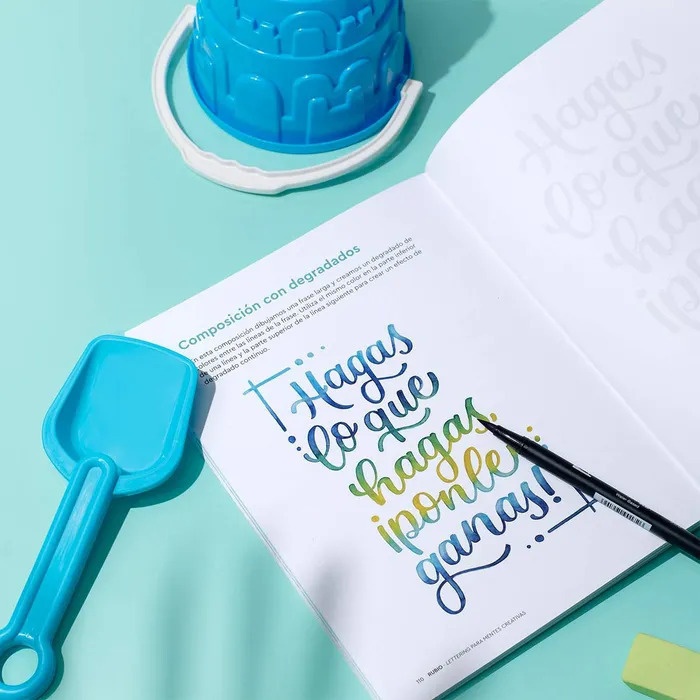 Composición con degradados
En esta composición dibujamos una frase larga y creamos un degradado de
colores entre las líneas de la frase. Utiliza el mismo color en la parte inferior
de una línea y la parte superior de la línea siguiente para crear un efecto de
degradado continuo.
Hagas
lo que
hagas,
¡ponle
ganas!
110 RUBIO · LETTERING PARA MENTES CREATIVAS
Hagas
lo que